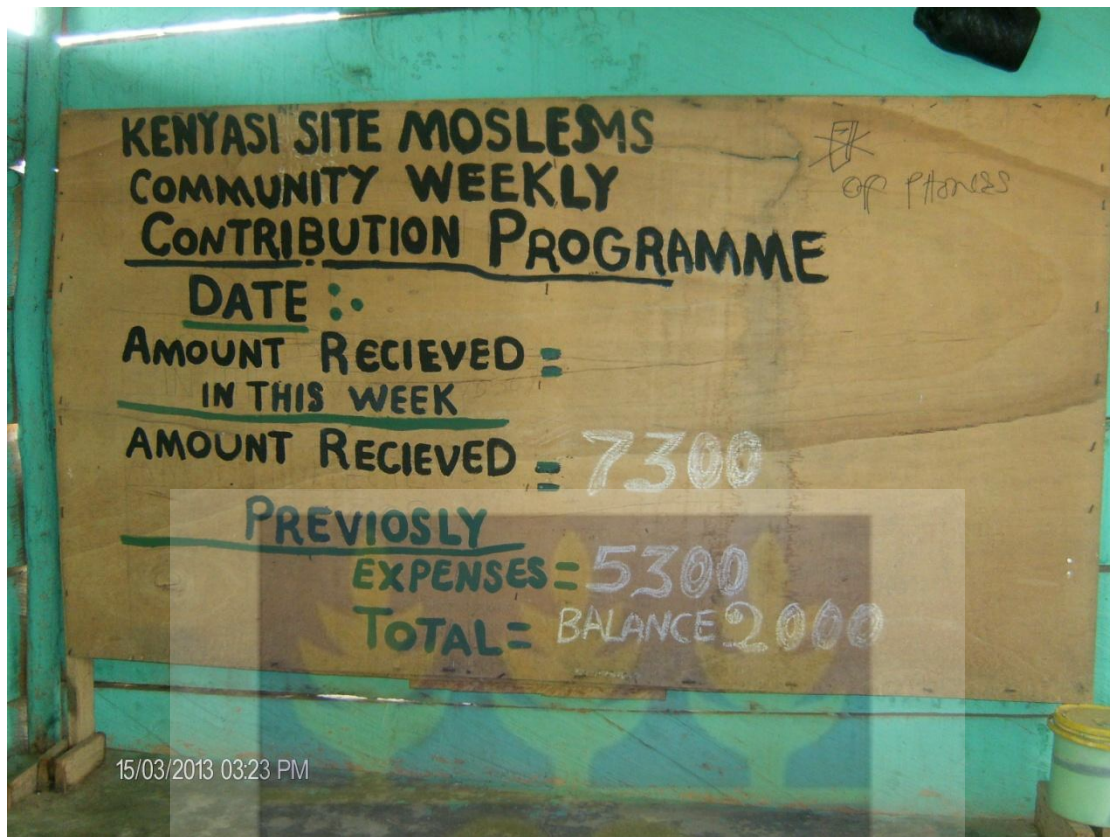 KENYASI SITE MOSLESMS
COMMUNITY WEEKLY
CONTRIBUTION PROGRAMME
DATE :-
AMOUNT RECIEVED =
IN THIS WEEK
AMOUNT RECIEVED = 7300
PREVIOSLY
EXPENSES = 5300
TOTAL = BALANCE 2000
OFF PHONES
15/03/2013 03:23 PM